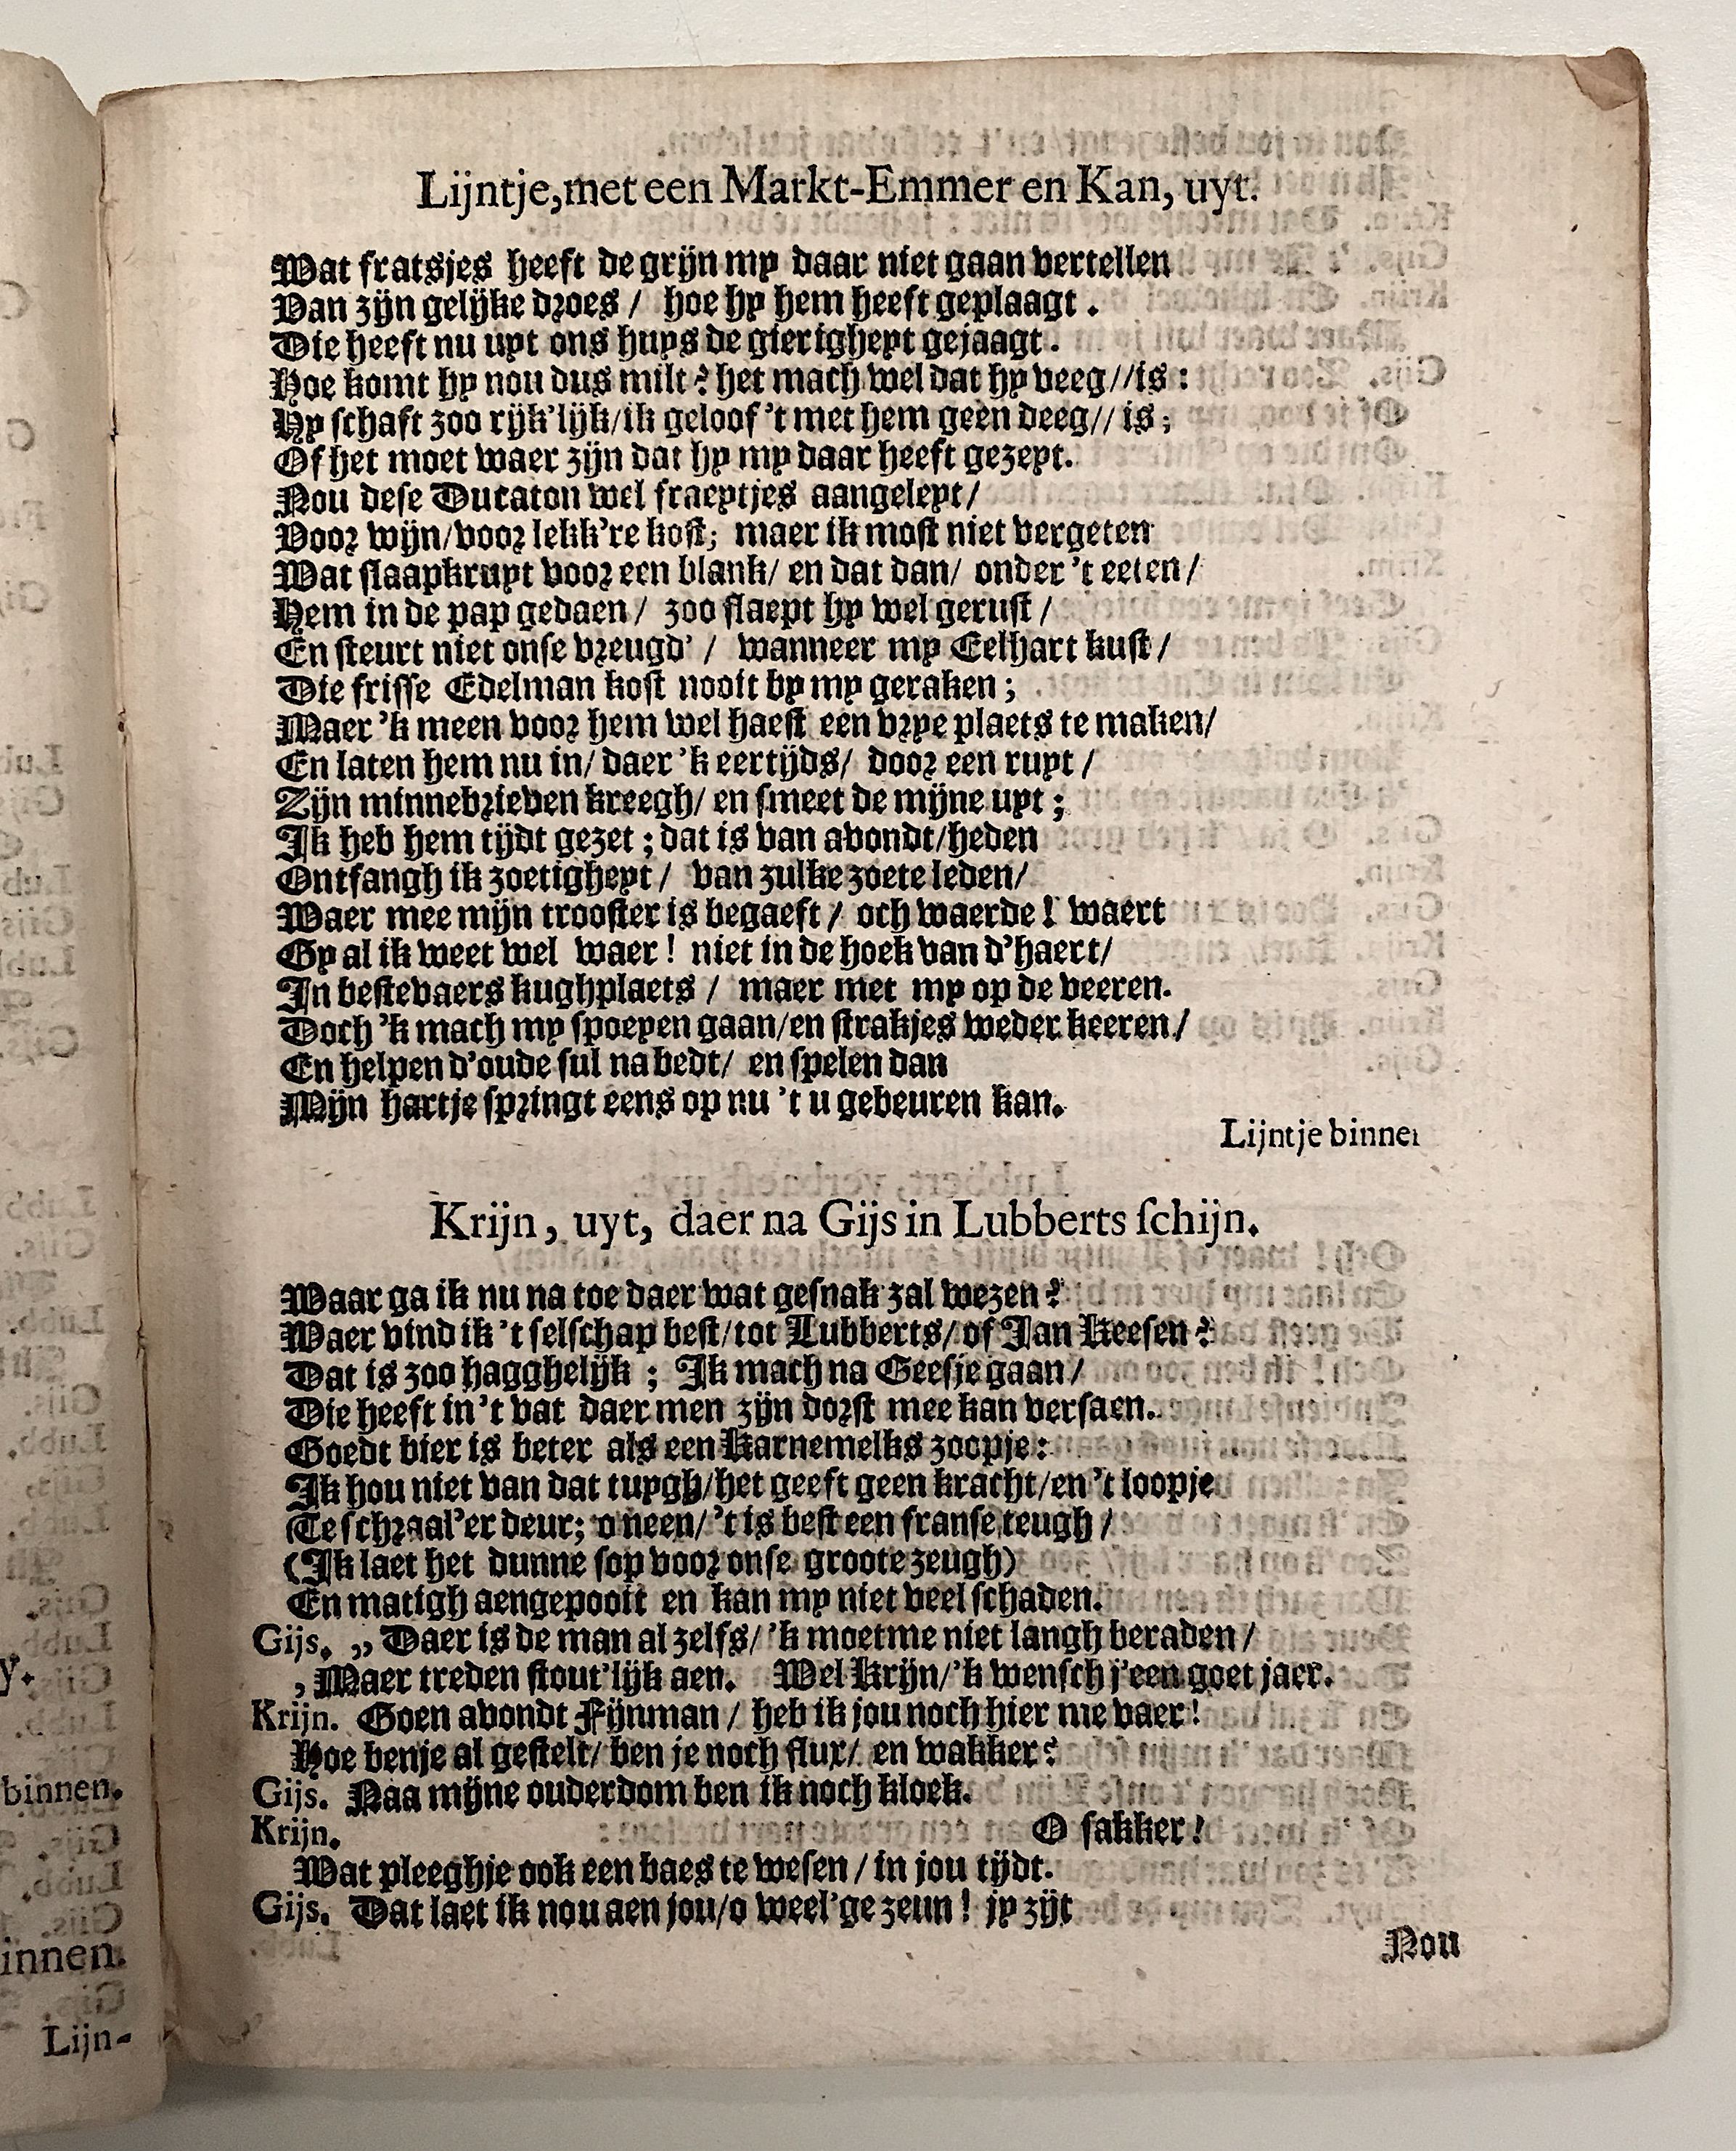 Lijntje, met een Markt-Emmer en Kan, uyt.
Wat fratsjes heeft de grijn my daar niet gaan vertellen
Van zijn gelijke droes / hoe hy hem heeft geplaagt.
Die heeft nu uyt ons huys de gierigheyt gejaagt.
Hoe komt hy nou dus milt? het mach wel dat hy veeg//is:
Hy schaft zoo rijk'lijk/ik geloof 't met hem geen deeg// is;
Of het moet waer zijn dat hy my daar heeft gezeyt.
Nou dese Ducaton wel fraeytjes aangeleyt/
Voor wijn/voor lekk're kost; maer ik most niet vergeten
Wat slaapkruyt voor een blank/ en dat dan/ onder 't eeten/
Hem in de pap gedaen / zoo slaept hy wel gerust /
En steurt niet onse vreugd' / wanneer my Eelhart kust /
Die frisse Edelman kost nooit by my geraken;
Maer 'k meen voor hem wel haest een vrye plaets te maken/
En laten hem nu in/ daer 'k eertijds/ door een ruyt /
Zijn minnebrieven kreegh/ en smeet de mijne uyt;
Ik heb hem tijdt gezet; dat is van avondt/heden
Ontfangh ik zoetigheyt / van zulke zoete leden/
Waer mee mijn trooster is begaeft / och waerde! waert
Gy al ik weet wel waer! niet in de hoek van d'haert/
In bestevaers kughplaets / maer met my op de veeren.
Doch 'k mach my spoeyen gaan/en strakjes weder keeren/
En helpen d'oude sul na bedt/ en spelen dan
Mijn hartje springt eens op nu 't u gebeuren kan.
Lijntje binnen
Krijn, uyt, daer na Gijs in Lubberts ſchijn.
Waar ga ik nu na toe daer wat gesnak zal wezen?
Waer vind ik 't selschap best/tot Lubberts/of Jan Keesen?
Dat is zoo hagghelijk; Ik mach na Geesje gaan/
Die heeft in 't vat daer men zijn dorst mee kan versaen.
Goedt bier is beter als een Karnemelks zoopje:
Ik hou niet van dat tuygh/het geeft geen kracht/en 't loopje
Te schraal'er deur; o neen/ 't is best een franse teugh /
(Ik laet het dunne sop voor onse groote zeugh)
En matigh aengepooit en kan my niet veel schaden.
Gijs. ,, Daer is de man al zelfs/ 'k moet me niet langh beraden/
, Maer treden stout'lijk aen. Wel Krijn/'k wensch j'een goet jaer.
Krijn. Goen avondt Fijnman / heb ik jou noch hier me vaer!
Hoe benje al gestelt/ ben je noch flux/ en wakker?
Gijs. Naa mijne ouderdom ben ik noch kloek.
Krijn. O sakker!
Wat pleeghje ook een baes te wesen / in jou tijdt.
Gijs. Dat laet ik nou aen jou/o weel'ge zeun! jy zijt
Nou
binnen.
innen.
Lijn-